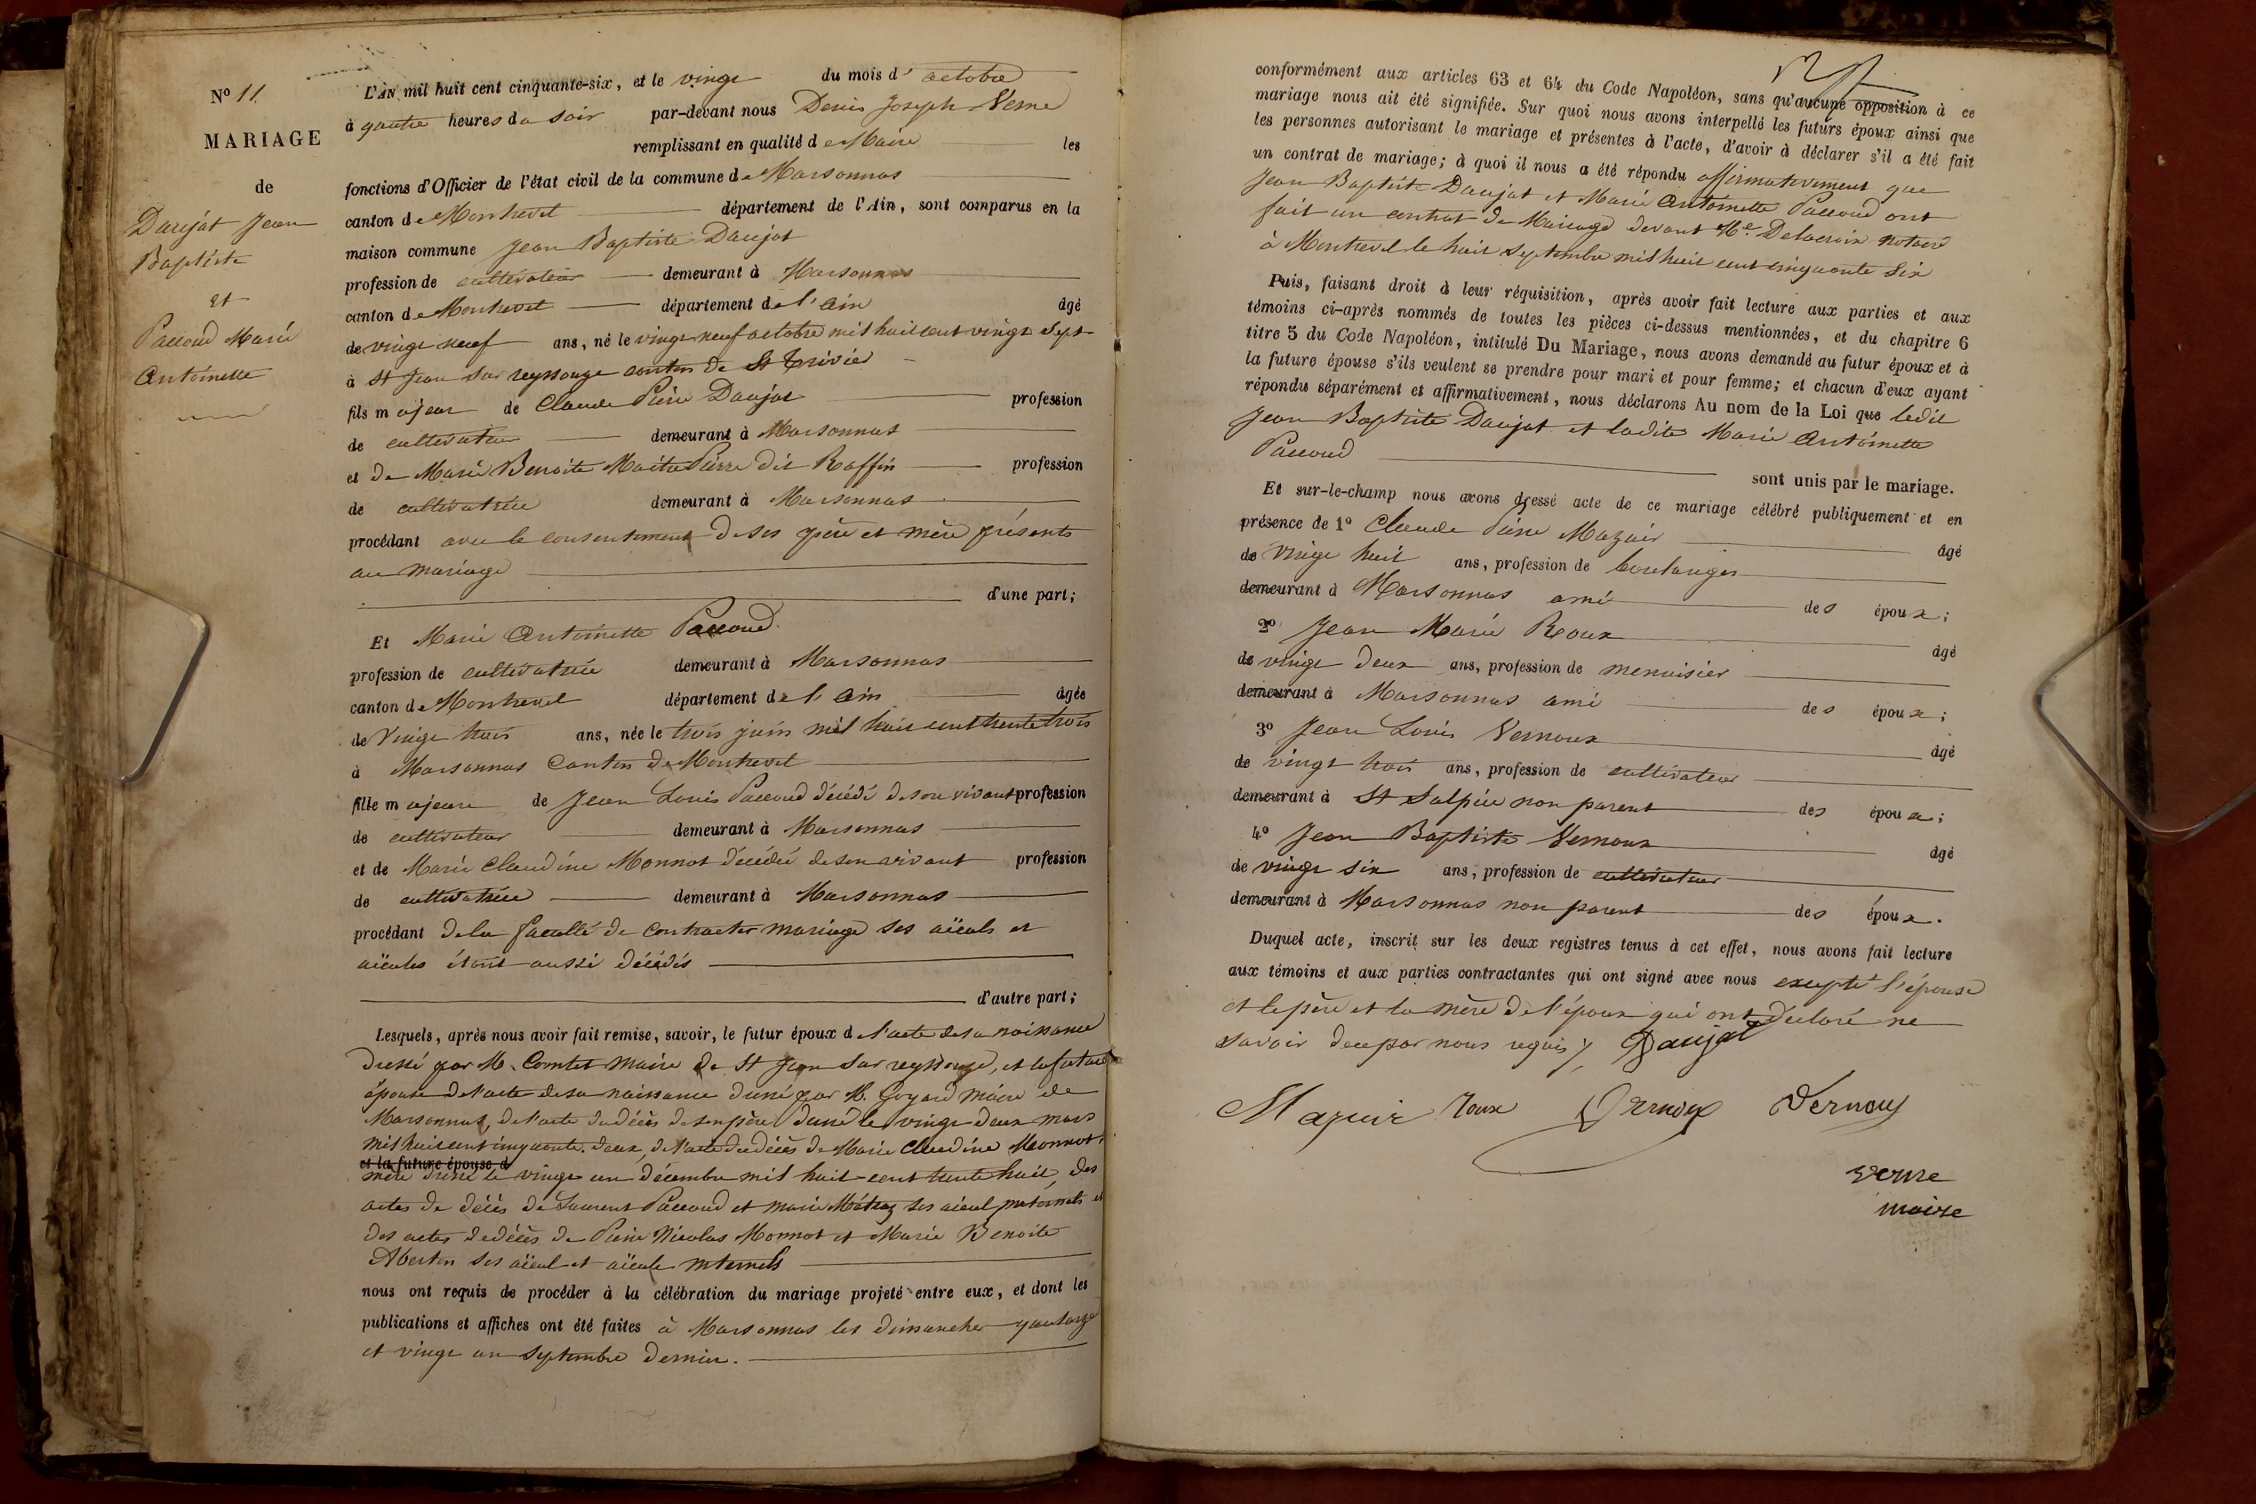 N° 11.
MARIAGE
de
Daujat Jean
Baptiste
et
Paccoud Marie
Antoinette
L'AN mil huit cent cinquante-six, et le vingt du mois d' octobre
à quatre heures du soir par-devant nous Denis Joseph Verne
remplissant en qualité de Maire les
fonctions d'Officier de l'état civil de la commune de Marsonnas
canton de Montrevel département de l'Ain, sont comparus en la
maison commune Jean Baptiste Daujat
profession de cultivateur demeurant à Marsonnas
canton de Montrevel département de l'ain âgé
de vingt neuf ans, né le vingt neuf octobre mil huit cent vingt sept
à St Jean sur reyssouze canton de St Trivier
fils majeur de Claude Pierre Daujat profession
de cultivateur demeurant à Marsonnas
et de Marie Benoite Maitre Pierre dit Roffin profession
de cultivatrice demeurant à Marsonnas
procédant avec le consentement de ses père et mère présents
au mariage
d'une part;
Et Marie Antoinette Paccoud.
profession de cultivatrice demeurant à Marsonnas
canton de Montrevel département de l'ain âgée
de vingt trois ans, née le trois juin mil huit cent trente trois
à Marsonnas Canton de Montrevel
fille majeure de Jean Louis Paccoud décédé de son vivant profession
de cultivateur demeurant à Marsonnas
et de Marie Claudine Monnot décédée de son vivant profession
de cultivatrice demeurant à Marsonnas
procédant de la faculté de contracter mariage ses aïeuls et
aïeules étant aussi décédés
d'autre part;
Lesquels, après nous avoir fait remise, savoir, le futur époux de l'acte de sa naissance
dressé par M. Comtet maire de St Jean sur reyssouze, et la future
épouse de l'acte de sa naissance dressé par M. Goyard maire de
Marsonnas, de l'acte du décès de son père dressé le vingt deux mars
mil huit cent cinquante deux, de l'acte du décès de Marie Claudine Monnot
et la future épouse d
mère dressé le vingt un décembre mil huit cent trente huit, des
actes de décès de Laurent Paccoud et marie Métraz ses aïeul paternels et
des actes de décès de Pierre Nicolas Monnot et Marie Benoite
ses aïeul et aïeule maternels
nous ont requis de procéder à la célébration du mariage projeté entre eux, et dont les
publications et affiches ont été faites à Marsonnas les dimanches quatorze
et vingt un septembre dernier.
conformément aux articles 63 et 64 du Code Napoléon, sans qu'aucune opposition à ce
mariage nous ait été signifiée. Sur quoi nous avons interpellé les futurs époux ainsi que
les personnes autorisant le mariage et présentes à l'acte, d'avoir à déclarer s'il a été fait
un contrat de mariage; à quoi il nous a été répondu affirmativement que
Jean Baptiste Daujat et Marie Antoinette Paccoud ont
fait un contrat de Mariage devant Me Delacroix notaire
à Montrevel le huit septembre mil huit cent cinquante six
Puis, faisant droit à leur réquisition, après avoir fait lecture aux parties et aux
témoins ci-après nommés de toutes les pièces ci-dessus mentionnées, et du chapitre 6
titre 5 du Code Napoléon, intitulé Du Mariage, nous avons demandé au futur époux et à
la future épouse s'ils veulent se prendre pour mari et pour femme; et chacun d'eux ayant
répondu séparément et affirmativement, nous déclarons Au nom de la Loi que ledit
Jean Baptiste Daujat et ladite Marie Antoinette
Paccoud
sont unis par le mariage.
Et sur-le-champ nous avons dressé acte de ce mariage célébré publiquement et en
présence de 1° Claude Pierre Mazuir âgé
de vingt huit ans, profession de boulanger
demeurant à Marsonnas ami des époux;
2° Jean Marie Roux âgé
de vingt deux ans, profession de menuisier
demeurant à Marsonnas ami des époux;
3° Jean Louis Vernoux âgé
de vingt trois ans, profession de cultivateur
demeurant à St Sulpice non parent des époux;
4° Jean Baptiste Vernoux âgé
de vingt six ans, profession de cultivateur
demeurant à Marsonnas non parent des époux.
Duquel acte, inscrit sur les deux registres tenus à cet effet, nous avons fait lecture
aux témoins et aux parties contractantes qui ont signé avec nous excepté l'épouse
et le père et la mère de l'époux qui ont déclaré ne
savoir de ce par nous requis, Daujat
Mazuir Roux Vernoux Vernoux
verne
maire